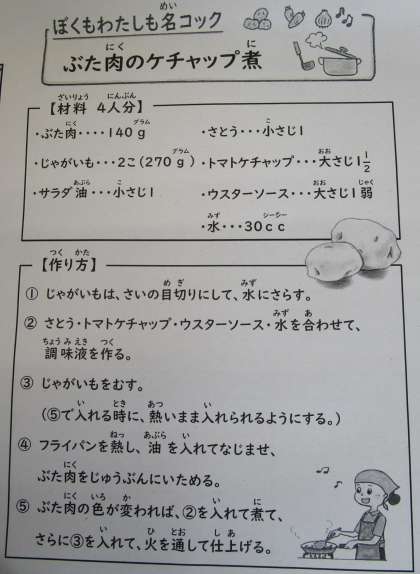 ぼくもわたしも名コック
ぶた肉のケチャップ煮
【材料 4人分】
・ぶた肉・・・・140g
・さとう・・・小さじ1
・じゃがいも・・・2こ(270g)
・トマトケチャップ・・・大さじ1 1/2
・サラダ油・・・小さじ1
・ウスターソース・・・大さじ1弱
・水・・・30cc
【作り方】
① じゃがいもは、さいの目切りにして、水にさらす。
② さとう・トマトケチャップ・ウスターソース・水を合わせて、
調味液を作る。
③ じゃがいもをむす。
(⑤で入れる時に、熱いまま入れられるようにする。)
④ フライパンを熱し、油を入れてなじませ、
ぶた肉をじゅうぶんにいためる。
⑤ ぶた肉の色が変われば、②を入れて煮て、
さらに③を入れて、火を通して仕上げる。